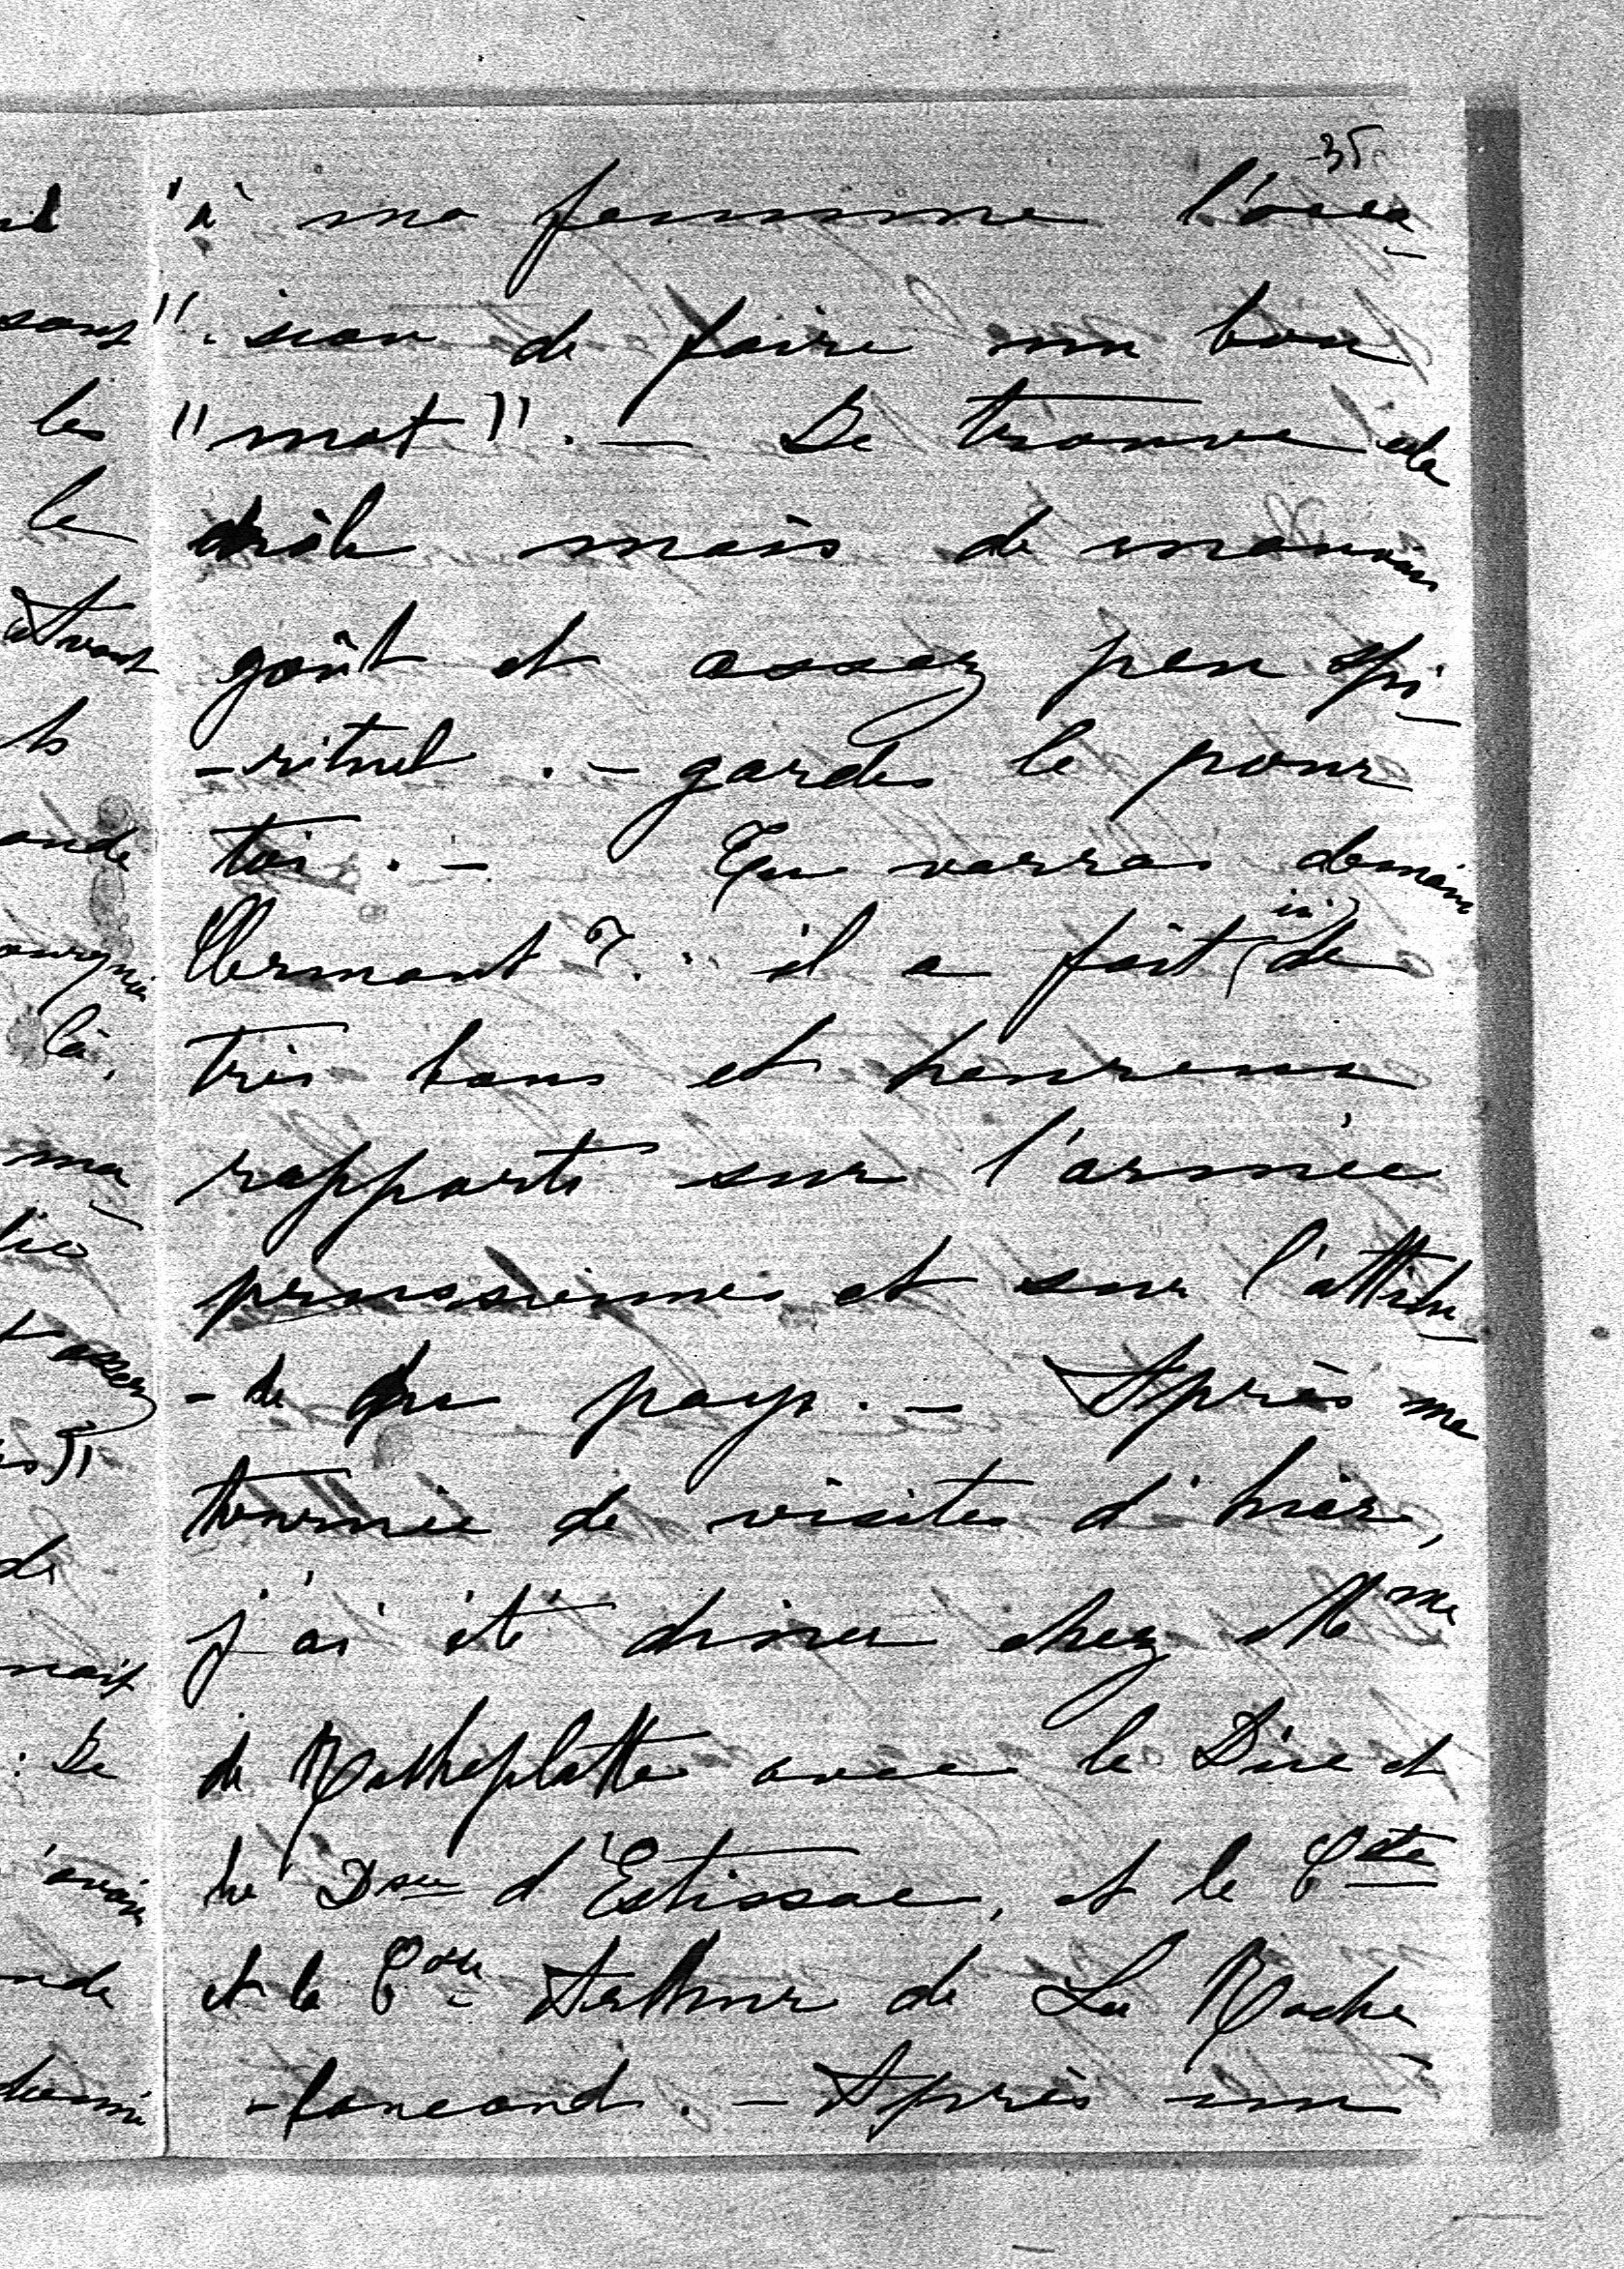 35
"à ma femme l'occa-
"sion de faire un bon
"mot". — Je trouve cela
drôle mais de mauvais
goût et assez peu spi-
-rituel. — gardes le pour
toi. — Tu verras demain
Clermont ? il a fait ici de
très bons et heureux
rapports sur l'armée
prussienne et sur l'attitu-
-de du pays. — Après ma
tournée de visites d'hier,
j'ai été diner chez Mme
de Rocheplatte avec le Duc et
la Dsse d'Estissac, et le Cte
et la Csse Arthur de La Roche
-foucaud. — Après un